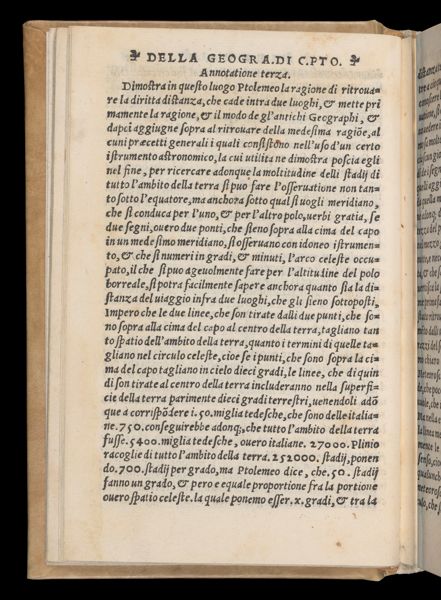 DELLA GEOGRA. DI C. PTO.
Annotatione terza.
Dimostra in questo luogo Ptolemeo la ragione di ritroua=
re la diritta distanza, che cade intra due luoghi, & mette pri
mamente la ragione, & il modo de gl'antichi Geographi, &
dapoi aggiugne sopra al ritrouare della medesima ragiōe, al
cuni præcetti generali i quali consistono nell'uso d'un certo
istrumento astronomico, la cui utilita ne dimostra poscia egli
nel fine, per ricercare adonque la moltitudine delli stadij di
tutto l'ambito della terra si puo fare l'osseruatione non tan=
to sotto l'equatore, ma anchora sotto qual si uogli meridiano,
che si conduca per l'uno, & per l'altro polo, uerbi gratia, se
due segni, ouero due ponti, che sieno sopra alla cima del capo
in un medesimo meridiano, si osseruano con idoneo istrumen=
to, & che si numeri in gradi, & minuti, l'arco celeste occu=
pato, il che si puo ageuolmente fare per l'altitudine del polo
borreale, si potra facilmente sapere anchora quanto sia la di=
stanza del uiaggio infra due luoghi, che gli sieno sottoposti,
Impero che le due linee, che son tirate dalli due punti, che so=
no sopra alla cima del capo al centro della terra, tagliano tan
to spatio dell'ambito della terra, quanto i termini di quelle ta=
gliano nel circulo celeste, cioe se i punti, che sono sopra la ci=
ma del capo tagliano in cielo dieci gradi, le linee, che di quin
di son tirate al centro della terra includeranno nella superfi=
cie della terra parimente dieci gradi terrestri, uenendoli adō
que a corrispōdere i. 50. miglia tedesche, che sono delle italia=
ne. 750. conseguirebbe adonq;, che tutto l'ambito della terra
fusse. 5400. miglia tedesche, ouero italiane. 27000. Plinio
racoglie di tutto l'ambito della terra. 252000. stadij, ponen
do. 700. stadij per grado, ma Ptolemeo dice, che. 50. stadij
fanno un grado, & pero e equale proportione fra la portione
ouero spatio celeste. la quale ponemo esser. x. gradi, & tra la